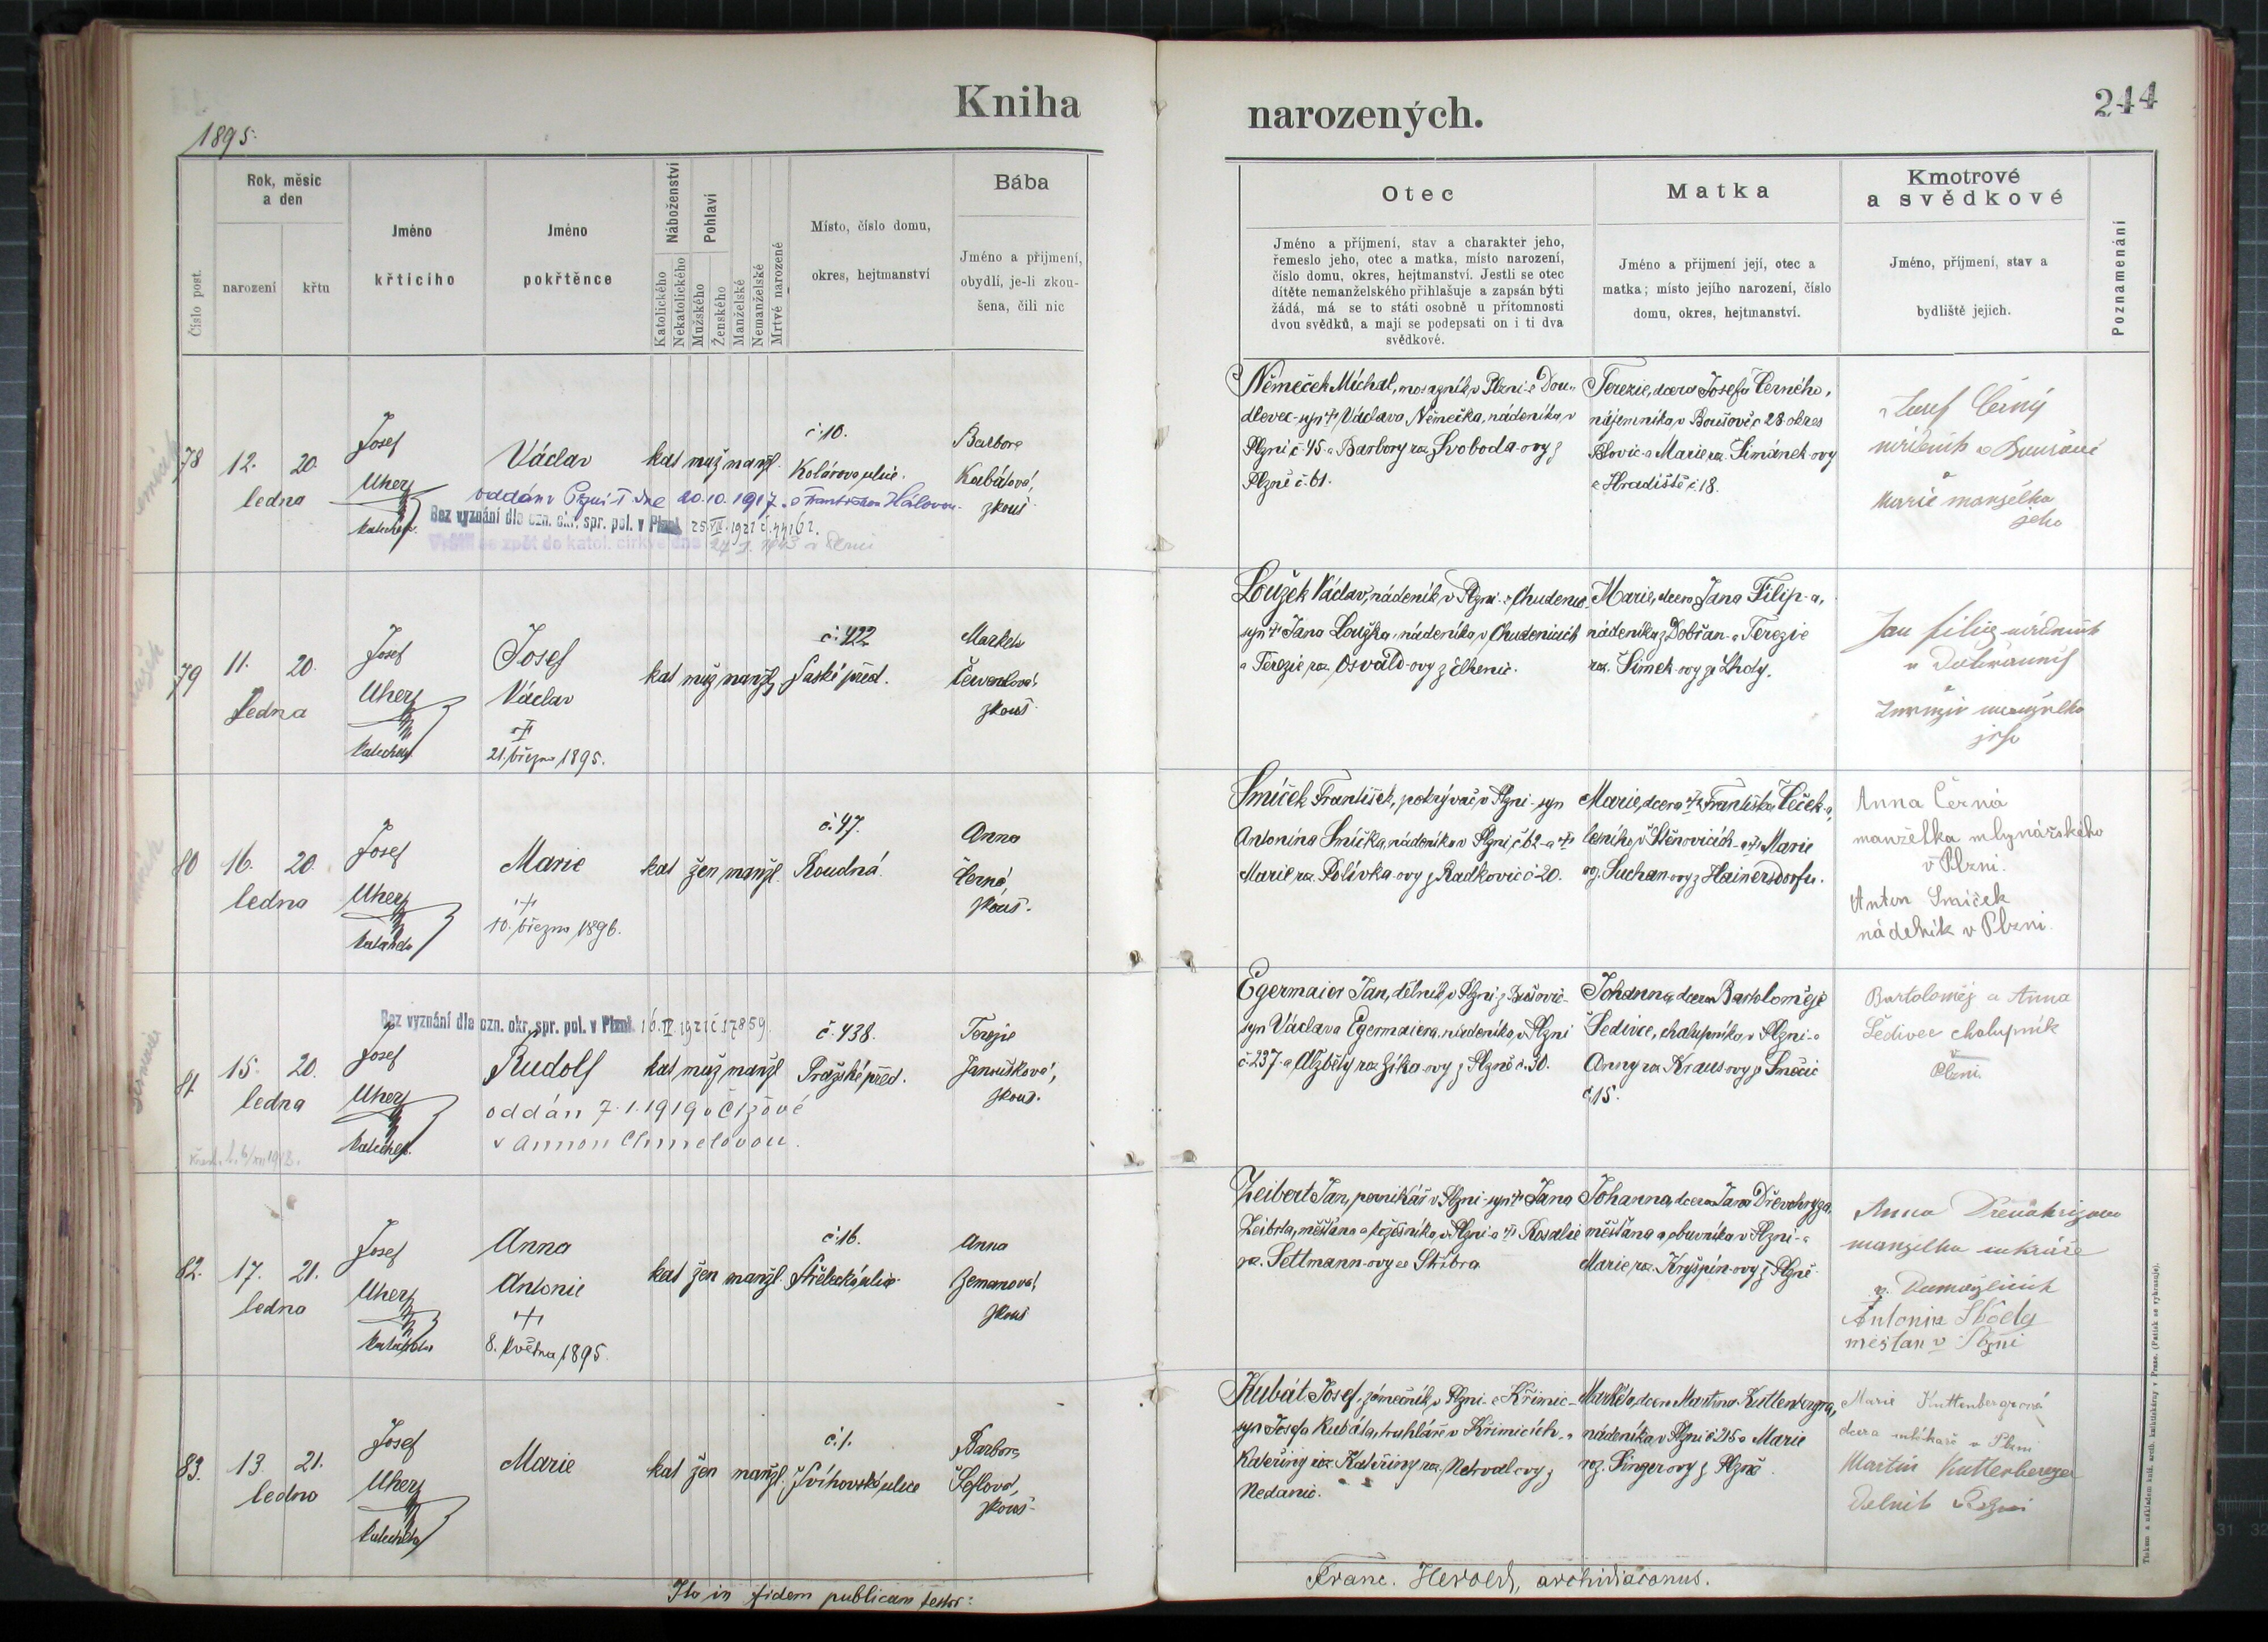 Kniha
narozených.
244
1895.
Číslo post.
Rok, měsíc
a den
narození
křtu
Jméno
křtícího
Jméno
pokřtěnce
Náboženství
Katolického
Nekatolického
Pohlaví
Mužského
Ženského
Manželské
Nemanželské
Mrtvě narozené
Místo, číslo domu,
okres, hejtmanství
Bába
Jméno a příjmení,
obydlí, je-li zkou-
šena, čili nic
Otec
Jméno a příjmení, stav a charakter jeho,
řemeslo jeho, otec a matka, místo narození,
číslo domu, okres, hejtmanství. Jestli se otec
dítěte nemanželského přihlašuje a zapsán býti
žádá, má se to státi osobně u přítomnosti
dvou svědků, a mají se podepsati on i ti dva
svědkové.
Matka
Jméno a příjmení její, otec a
matka; místo jejího narození, číslo
domu, okres, hejtmanství.
Kmotrové
a svědkové
Jméno, příjmení, stav a
bydliště jejich.
Poznamenání
78
12. 20.
ledna
Josef
Uherz
Václav
kat muž manžl.
č. 10.
Kolárova ulice.
Barbora
Kabátová,
zkouš
oddán v Plzni dne 20.10.1917 s Františkou Hálovou
Bez vyznání dle ozn. okr. spr. pol. v Plzni
Vrátil se zpět do katol. církve dne
Němeček Michal, mosazník v Plzni z Dou-
dlevec - syn † Václava Němečka, nádeníka v
Plzni č. 45 a Barbory roz. Svoboda-ovy z
Plzně č. 61.
Terezie, dcera Josefa Černého,
nájemníka v Boušově č. 28 okres
Blovic a Marie roz. Šimánek-ovy
z Hradiště č. 18.
Josef Černý
Marie manželka
jeho
79
11. 20.
ledna
Josef
Uherz
Josef
Václav
†
21. března 1895.
kat muž manžl
č. 422
Saské před.
Markéta
Červenková,
zkouš
Loužek Václav, nádeník v Plzni z Chudenic
syn † Jana Loužka, nádeníka v Chudenicích
a Terezie roz. Osvald-ovy z
Marie, dcera Jana Filip-a,
nádeníka z Dobřan a Terezie
roz. Šimek-ovy ze Lhoty.
Jan Filip nádeník
v Dobřanech
manželka
jeho
80
16. 20.
ledna
Josef
Uherz
Marie
†
10. března 1896.
kat žen manžl.
č. 47.
Roudná.
Anna
Černá,
zkouš.
Smíček František, pokrývač v Plzni - syn
Antonína Smíčka, nádeníka v Plzni č. 62 a †
Marie roz. Polívka-ovy z Radkovic č. 20.
Marie, dcera † Františka
v Štěnovicích a † Marie
roz. Suchan-ovy z Hainersdorfu.
Anna Černá
manželka mlynářského
v Plzni.
Anton Smíček
nádeník v Plzni.
81
15. 20.
ledna
Josef
Uherz
Bez vyznání dle ozn. okr. spr. pol. v Plzni
Rudolf
kat muž manžl
oddán 7.1.1919 v Čižové
s Annou Chmelovou.
č. 438.
Pražské před.
Terezie
Janoušková,
zkouš.
Egermaier Jan, dělník v Plzni z
syn Václava Egermaiera, nádeníka v Plzni
č. 237 a Alžběty roz. Zíka-ovy z Plzně č. 30.
Johanna, dcera Bartoloměje
Šedivce, chalupníka v Plzni a
Anny roz. Kraus-ovy ze
č. 15.
Bartoloměj a Anna
Šedivec chalupník
v
Plzni.
82.
17. 21.
ledna
Josef
Uherz
Anna
Antonie
†
8. května 1895.
kat žen manžl.
č. 16.
Střelecká ulice
Anna
Zemanová,
zkouš
Zeibert Jan, perníkář v Plzni - syn † Jana
Zeibrta, měšťana a v Plzni a † Rosalie
roz. Settmann-ovy ze Stříbra
Johanna, dcera Jana Dřevohryza,
měšťana a obuvníka v Plzni a
Marie roz. Kryšpín-ovy z Plzně
Anna
manželka cukráře
v Domažlicích
Antonín Škoda
měšťan v Plzni
83.
13. 21.
ledna
Josef
Uherz
Marie
kat žen manžl.
č. 1.
Švihovská ulice
Barbora
Šeflová,
zkouš
Kubát Josef, zámečník v Plzni z Křimic-
syn Josefa Kubáta, truhláře v Křimicích a
Kateřiny roz. Kateřiny roz. Netval-ovy z
Nedanic.
Markéta, dcera Martina Kuttenbergra,
nádeníka v Plzni č. 215 a Marie
roz. Singer-ovy z Plzně.
Marie Kuttenbergrová
dcera v Plzni
Martin Kuttenberger
Dělník v Plzni
Ita in fidem publicam testor:
Franc. Herold, archidiaconus.